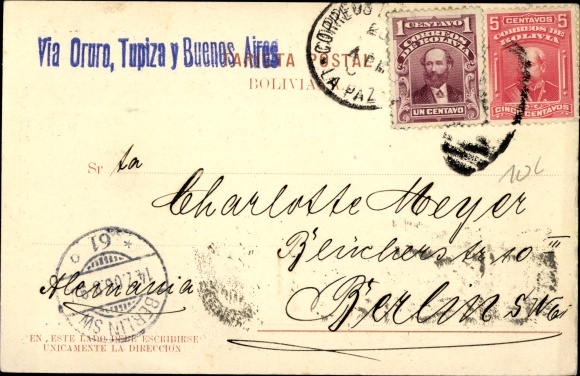 Via Oruro, Tupiza y Buenos Aires
TARJETA POSTAL
BOLIVIA
CORREOS
LA PAZ
1 CENTAVO 1
CORREOS
DE BOLIVIA
UN CENTAVO
5 CENTAVOS 5
CORREOS DE
BOLIVIA
CINCO CENTAVOS
10L
Sr ta
Charlotte Meyer
Blücherstr. 10 III
Berlin SW 61
Alemania
* 61 *
BERLIN SW
EN ESTE LADO DEBE ESCRIBIRSE
ÚNICAMENTE LA DIRECCIÓN